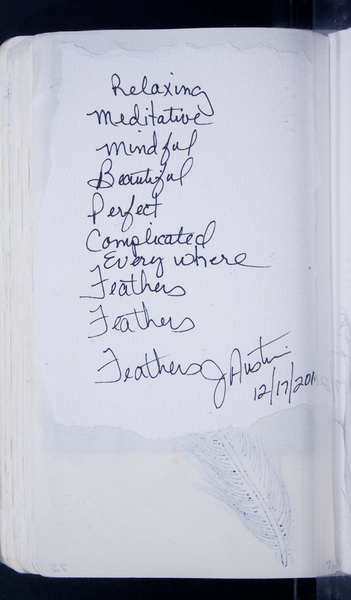 Relaxing
Meditative
Mindful
Beautiful
Perfect
Complicated
Every where
Feathers
Feathers
Feathers J Austin
12/17/201